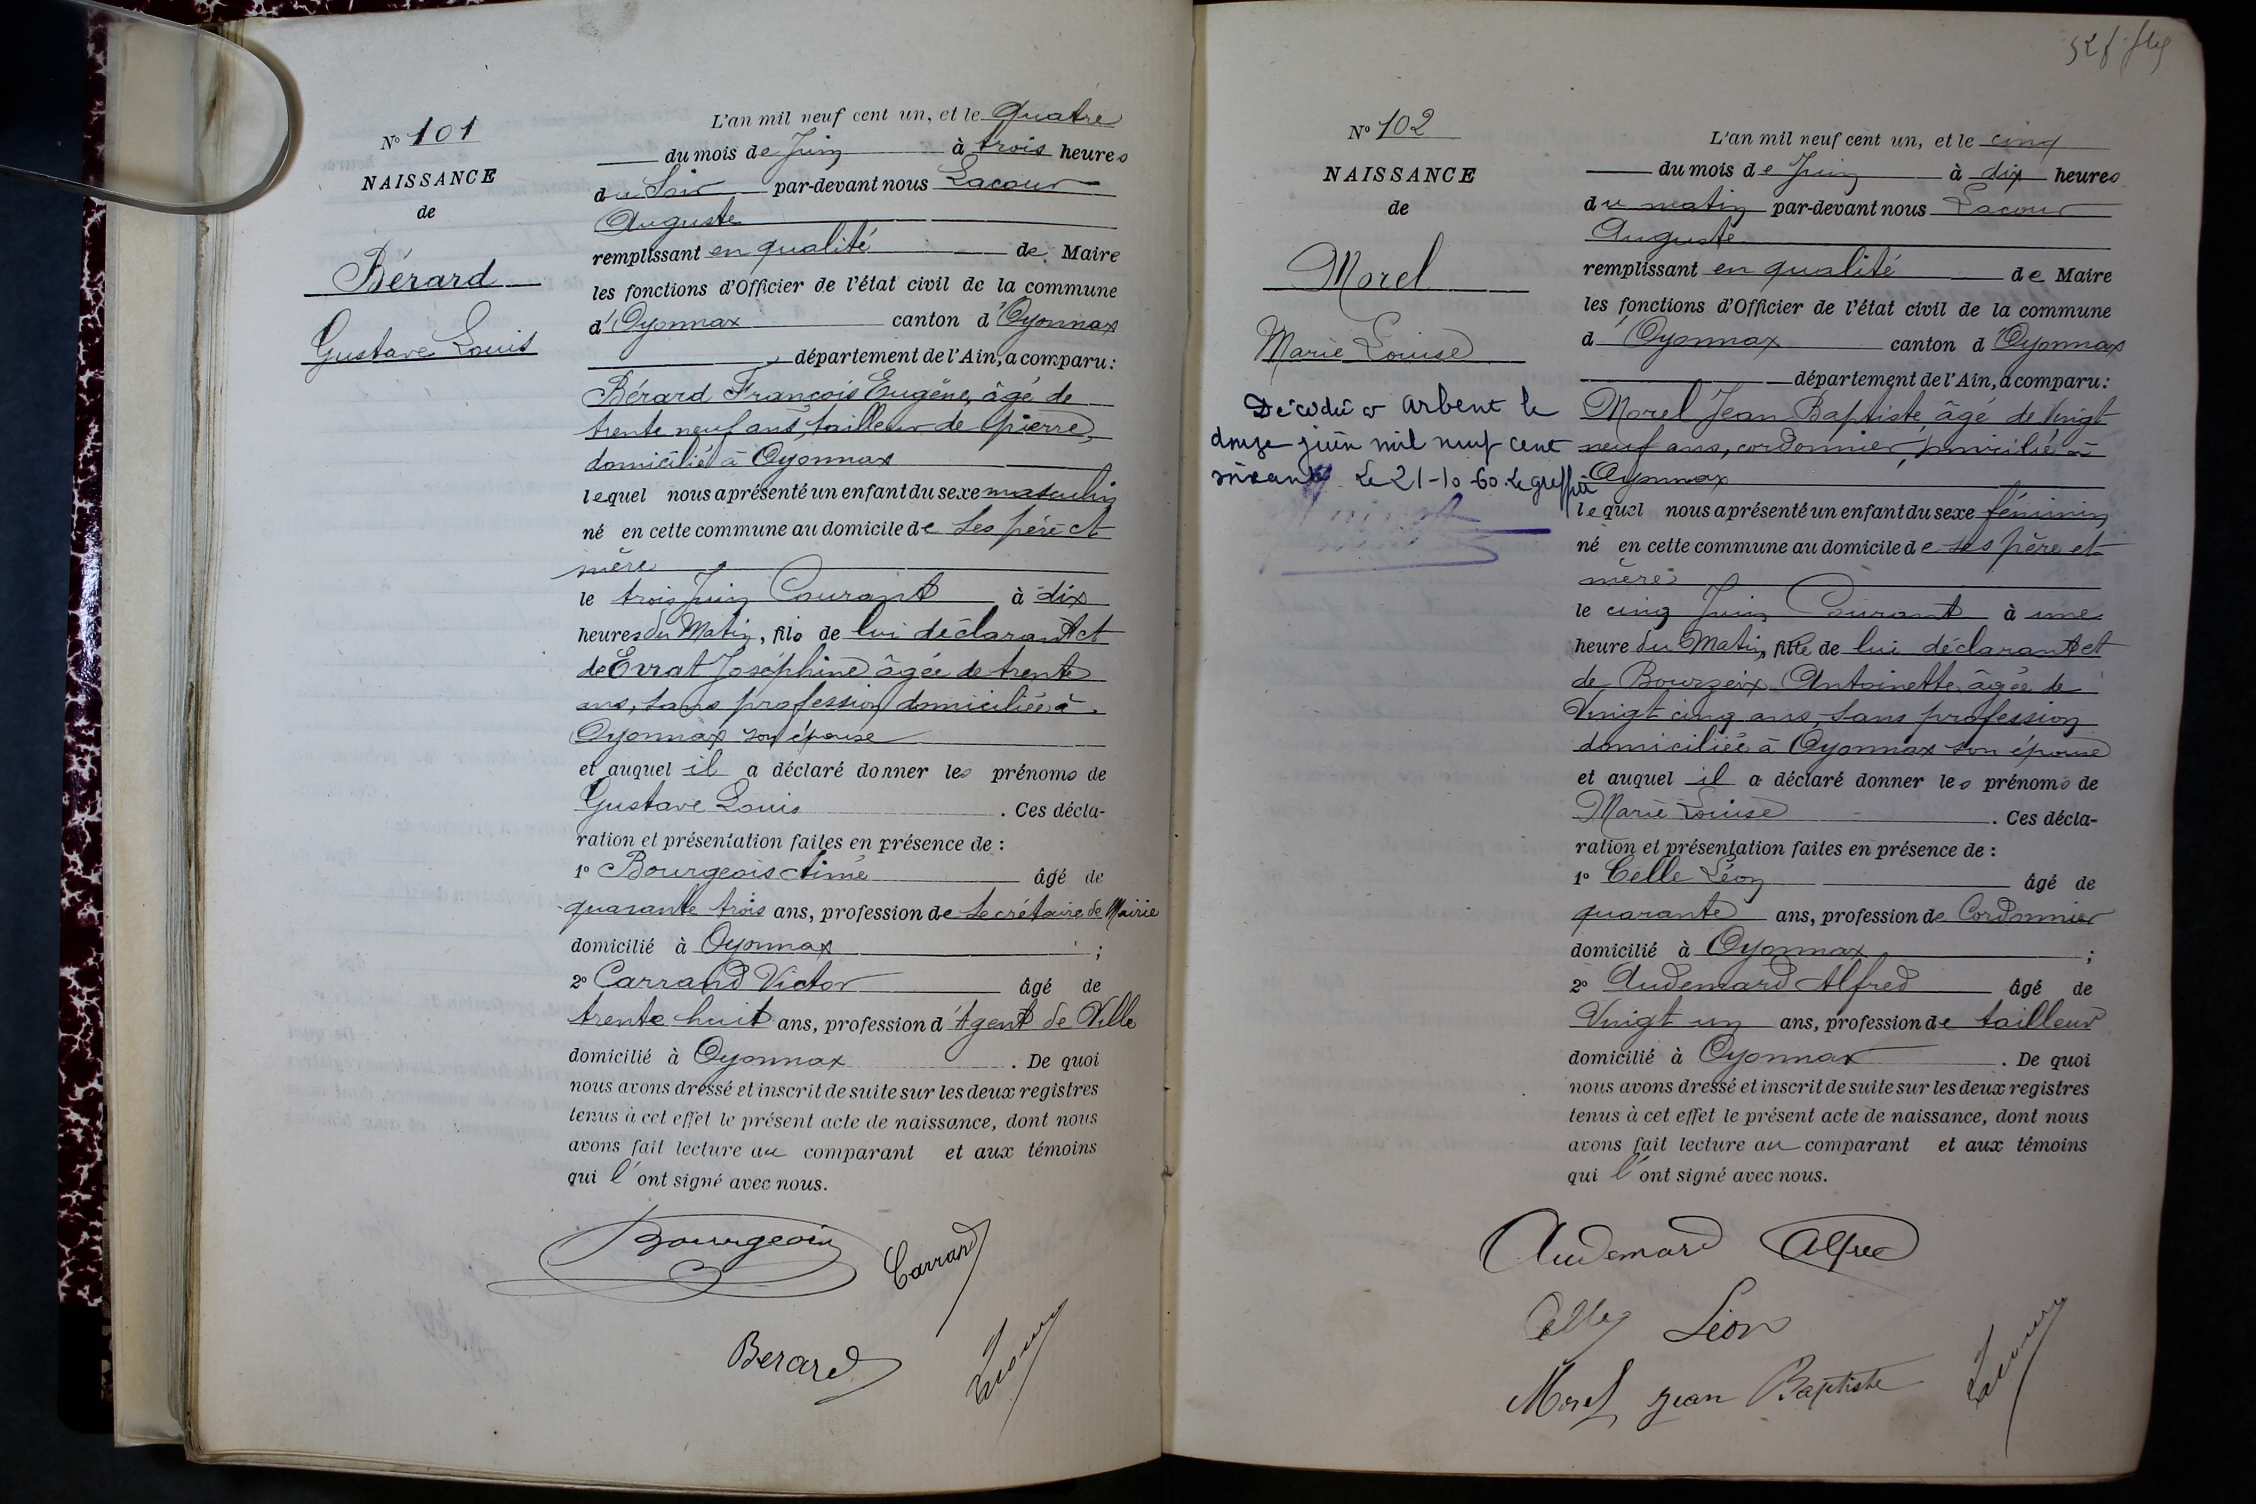 N° 101
NAISSANCE
de
Bérard
Gustave Louis
L'an mil neuf cent un, et le quatre
du mois de Juin à trois heures
du soir par-devant nous Lacour
Auguste
remplissant en qualité de Maire
les fonctions d'Officier de l'état civil de la commune
d'Oyonnax canton d'Oyonnax
département de l'Ain, a comparu :
Bérard François Eugène, âgé de
trente neuf ans, tailleur de pierre,
domicilié à Oyonnax
lequel nous a présenté un enfant du sexe masculin
né en cette commune au domicile de ses père et
mère
le trois Juin Courant à dix
heures du Matin, fils de lui déclarant et
de Evrat Joséphine âgée de trente
ans, sans profession domiciliée à
Oyonnax son épouse
et auquel il a déclaré donner les prénoms de
Gustave Louis . Ces décla-
ration et présentation faites en présence de :
1° Bourgeois Aimé âgé de
quarante trois ans, profession de Secrétaire de Mairie
domicilié à Oyonnax ;
2° Carrand Victor âgé de
trente huit ans, profession d'Agent de Ville
domicilié à Oyonnax . De quoi
nous avons dressé et inscrit de suite sur les deux registres
tenus à cet effet le présent acte de naissance, dont nous
avons fait lecture au comparant et aux témoins
qui l'ont signé avec nous.
Bourgeois
Carrand
Berard
Lacour
N° 102
NAISSANCE
de
Morel
Marie Louise
Décédée à Arbent le
douze juin mil neuf cent
soixante Le 21-10-60. Le greffier
L'an mil neuf cent un, et le cinq
du mois de Juin à dix heures
du matin par-devant nous Lacour
Auguste
remplissant en qualité de Maire
les fonctions d'Officier de l'état civil de la commune
d'Oyonnax canton d'Oyonnax
département de l'Ain, a comparu :
Morel Jean Baptiste âgé de Vingt
neuf ans, cordonnier, domicilié à
Oyonnax
lequel nous a présenté un enfant du sexe féminin
né en cette commune au domicile de ses père et
mère
le cinq Juin Courant à une
heure du Matin, fille de lui déclarant et
de Bourzeix Antoinette âgée de
Vingt cinq ans, sans profession
domiciliée à Oyonnax son épouse
et auquel il a déclaré donner les prénoms de
Marie Louise . Ces décla-
ration et présentation faites en présence de :
1° Celle Léon âgé de
quarante ans, profession de Cordonnier
domicilié à Oyonnax ;
2° Audemard Alfred âgé de
Vingt un ans, profession de tailleur
domicilié à Oyonnax . De quoi
nous avons dressé et inscrit de suite sur les deux registres
tenus à cet effet le présent acte de naissance, dont nous
avons fait lecture au comparant et aux témoins
qui l'ont signé avec nous.
Audemard Alfred
Celle Léon
Morel Jean Baptiste
Lacour